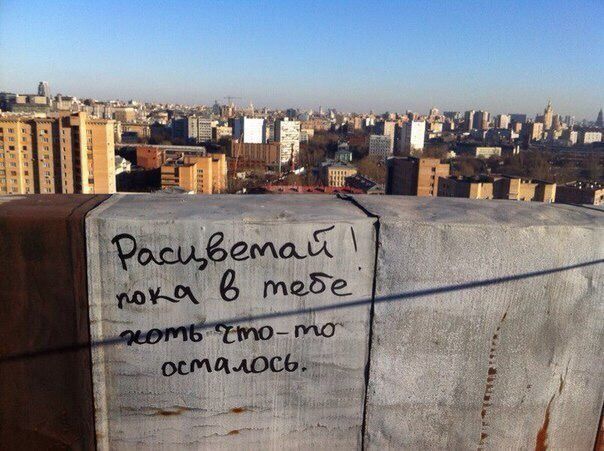 Расцветай!
пока в тебе
хоть что-то
осталось.